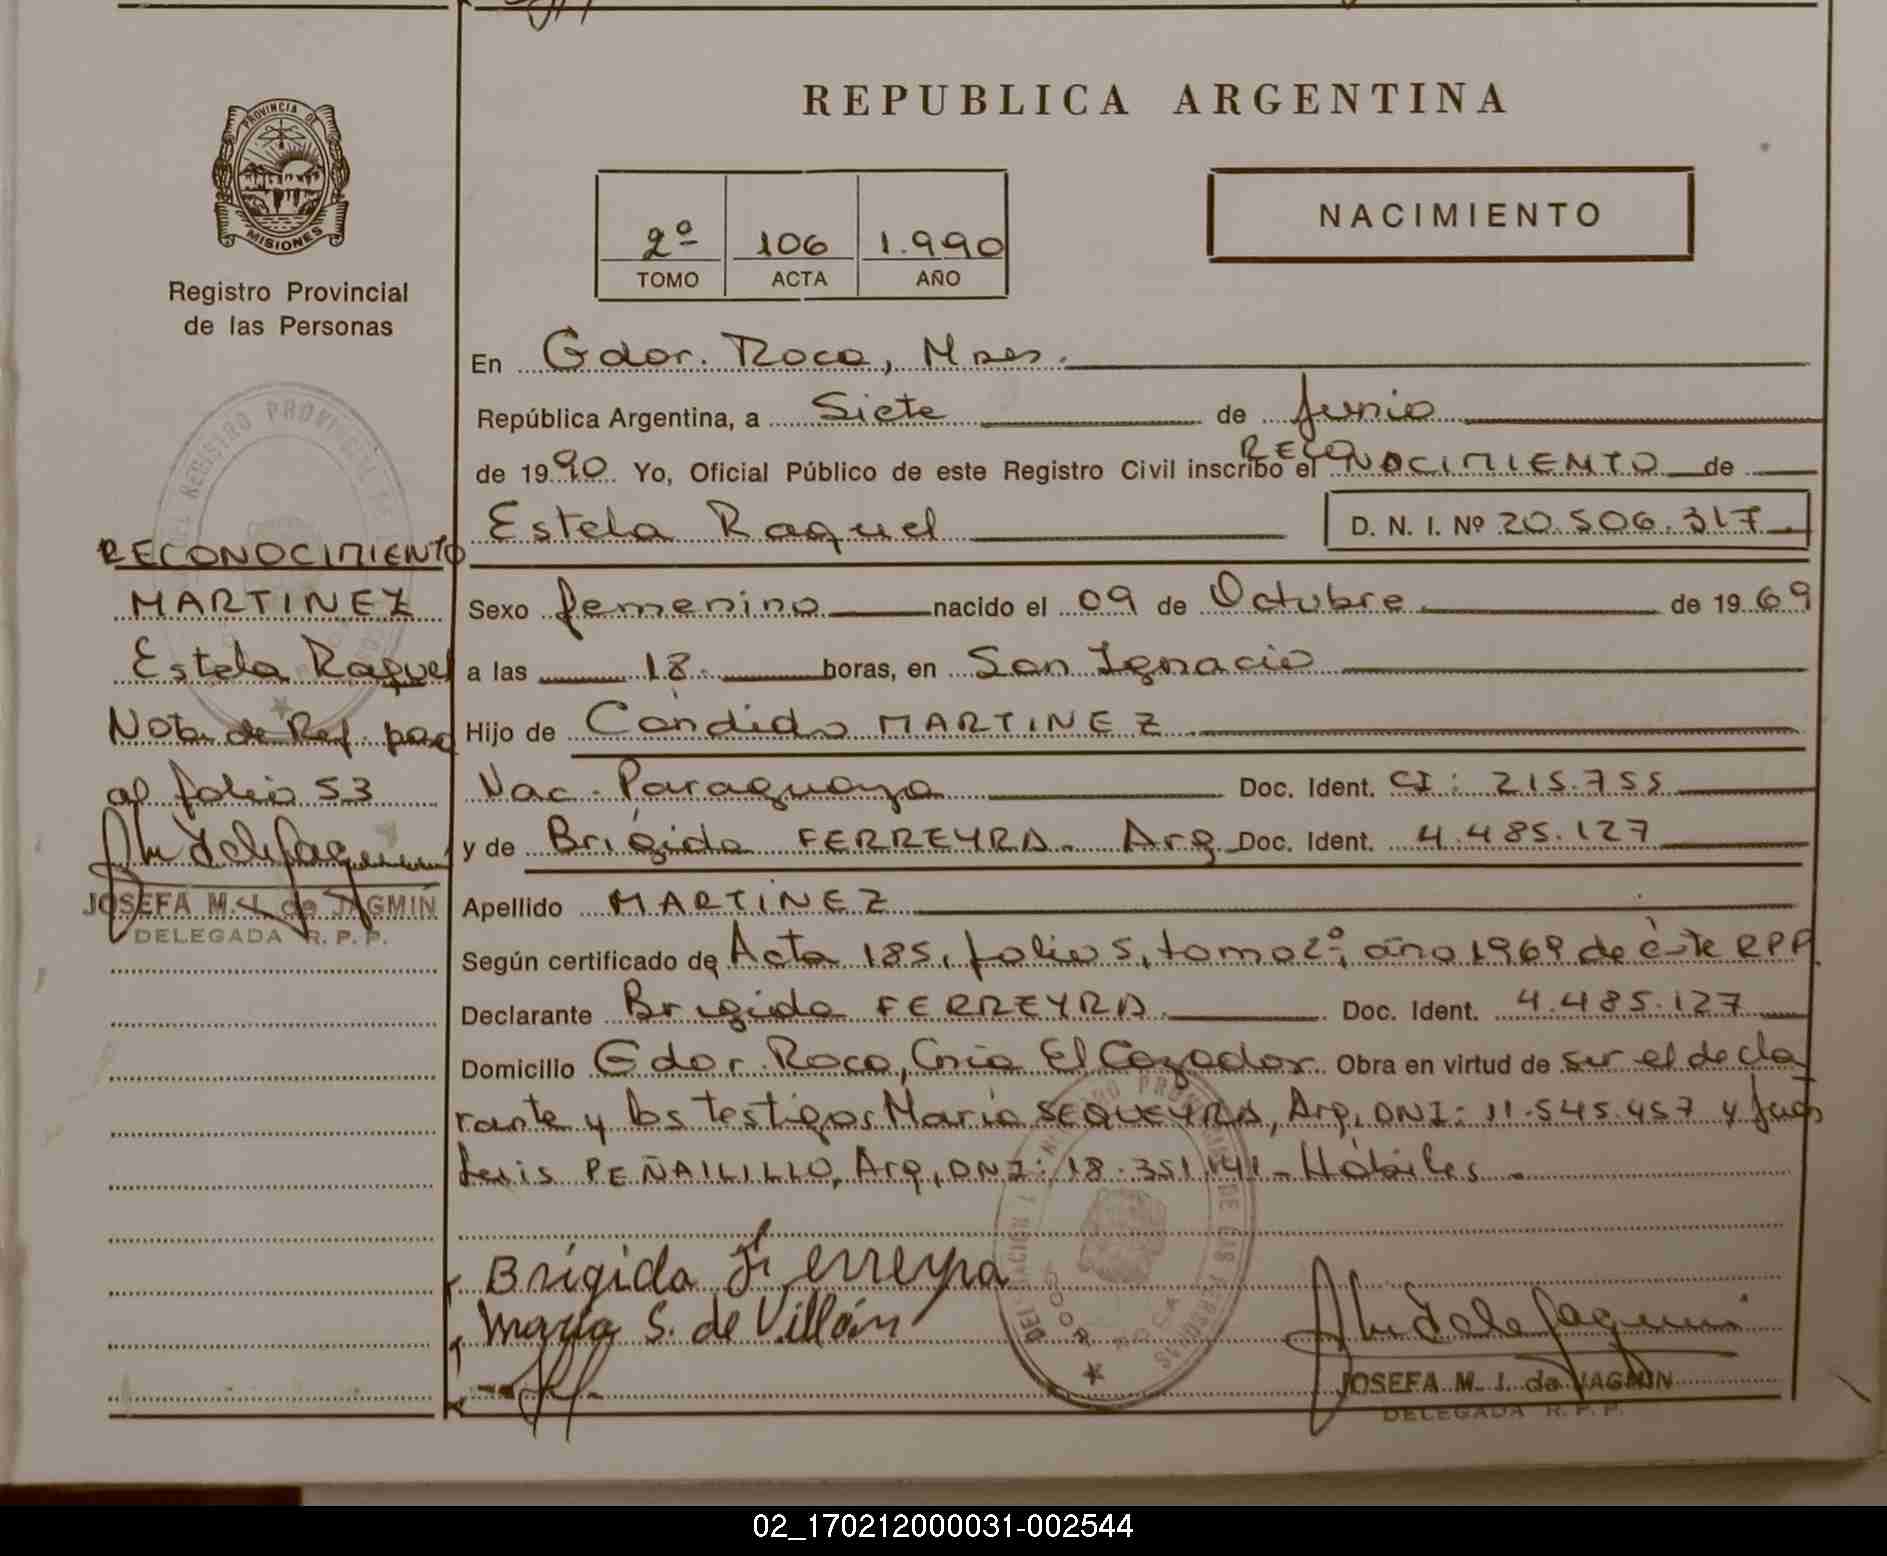 REPUBLICA ARGENTINA
PROVINCIA DE
MISIONES
Registro Provincial
de las Personas
NACIMIENTO
2º 106 1.990
TOMO ACTA AÑO
En Gdor. Roca, Mnes.
República Argentina, a Siete de Junio
de 1990 Yo, Oficial Público de este Registro Civil inscribo el RECONOCIMIENTO de
Estela Raquel D. N. I. Nº 20.506.317
Sexo femenino nacido el 09 de Octubre de 1969
a las 18 horas, en San Ignacio
Hijo de Cándido MARTINEZ
Nac. Paraguaya Doc. Ident. CI: 215.755
y de Brígida FERREYRA Arg Doc. Ident. 4.485.127
Apellido MARTINEZ
Según certificado de Acta 185, folio 5, tomo 2º, año 1969 de éste RPP.
Declarante Brigida FERREYRA Doc. Ident. 4.485.127
Domicilio Gdor. Roca, Cnia El Cazador Obra en virtud de ser el decla
rante y los testigos María SEQUEYRA, Arg, DNI: 11.545.457 y Juan
Luis PEÑAILILLO, Arg, DNI: 18.351.141 - Hábiles.
Brígida Ferreyra
S. de Villán
JOSEFA M. I. de JAGMIN
DELEGADA R. P. P.
RECONOCIMIENTO
MARTINEZ
Estela Raquel
Nota de Ref. pag
al folio 53
JOSEFA M. I. de JAGMIN
DELEGADA R. P. P.
02_170212000031-002544